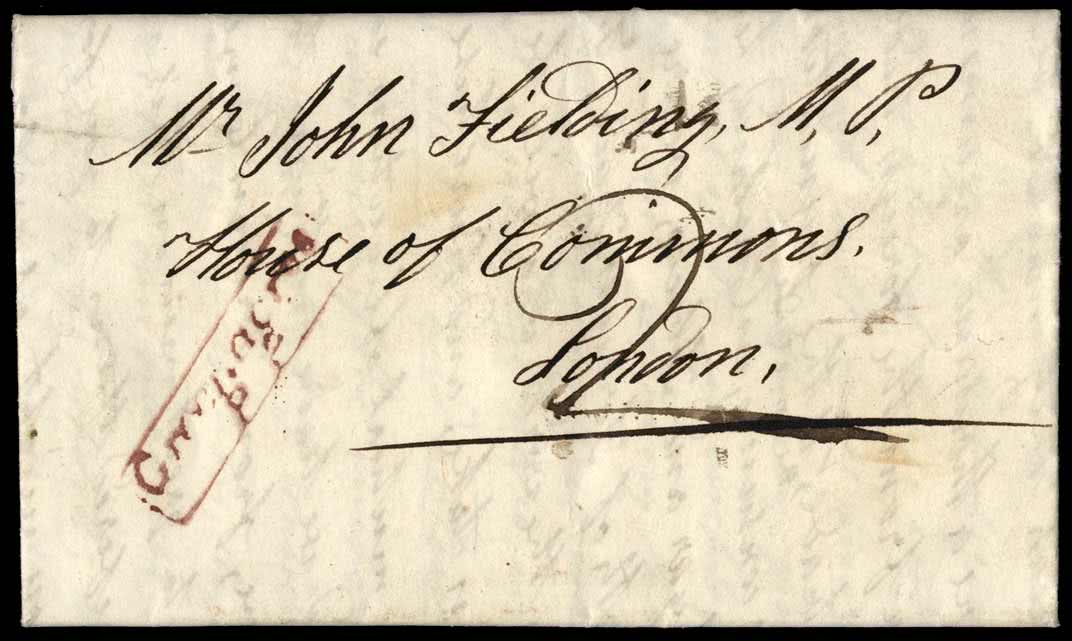 Mr John Fielding, M, P,
House of Commons.
London,
2